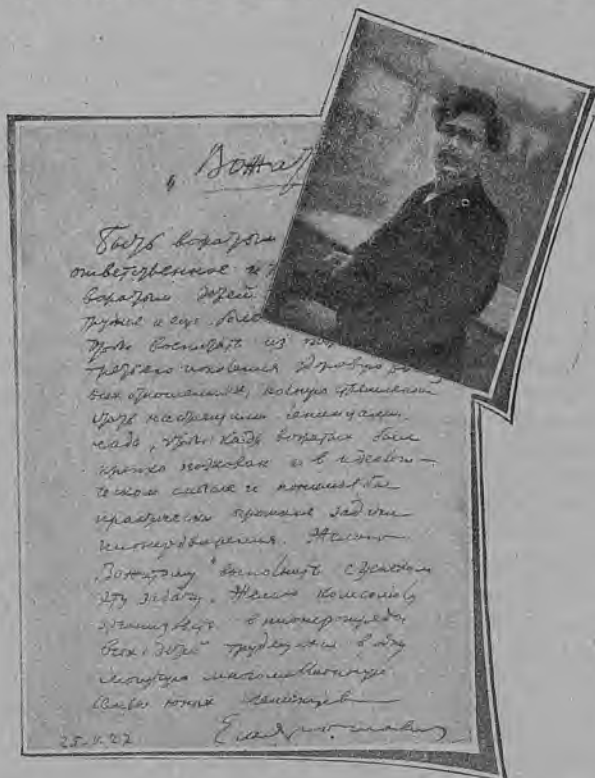 „Вожат
Быть вожатым
ответственное и
вожатым детей
труднее и еще более
чтобы воспитать из
третьего поколения здоровую
всех отношениях, полную стремлений
стать настоящими ленинцами,
надо, чтобы вожатый был
крепко подкован и в идеологи-
ческом смысле и понимал бы
практически громадные задачи
пионердвижения. Желаю
„Вожатому" выполнить с успехом
эту задачу. Желаю комсомолу
организовать в пионеротряды
всех детей трудящихся в одну
могучую многомиллионную
семью юных ленинцев
Ем. Ярославский
25.V.27